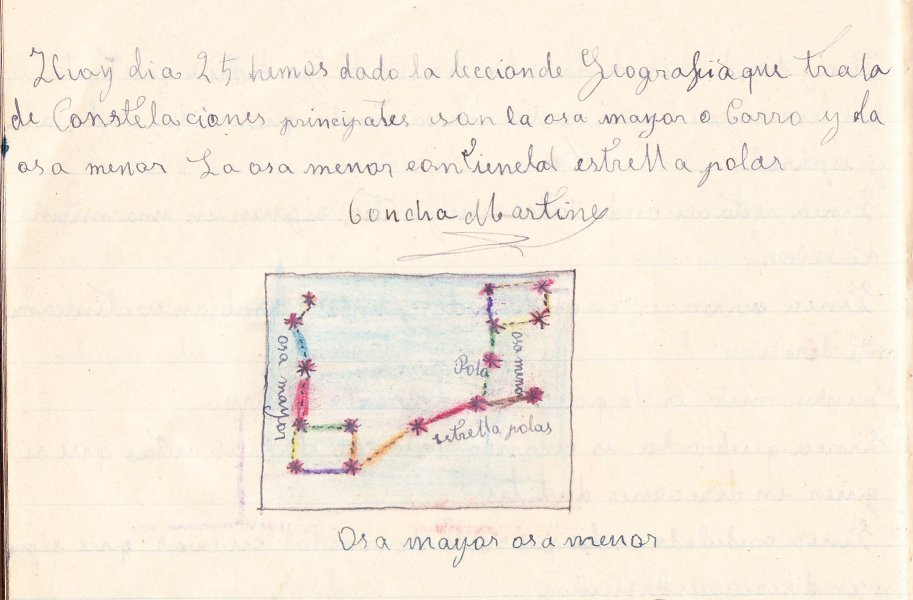 Hoy dia 25 hemos dado la leccion de Geografia que trata
de Constelaciones principales son la osa mayor o Carro y la
osa menor La osa menor contiene la estrella polar
Concha Martine
osa mayor
osa menor
Pola
estrella polas
Osa mayor osa menor